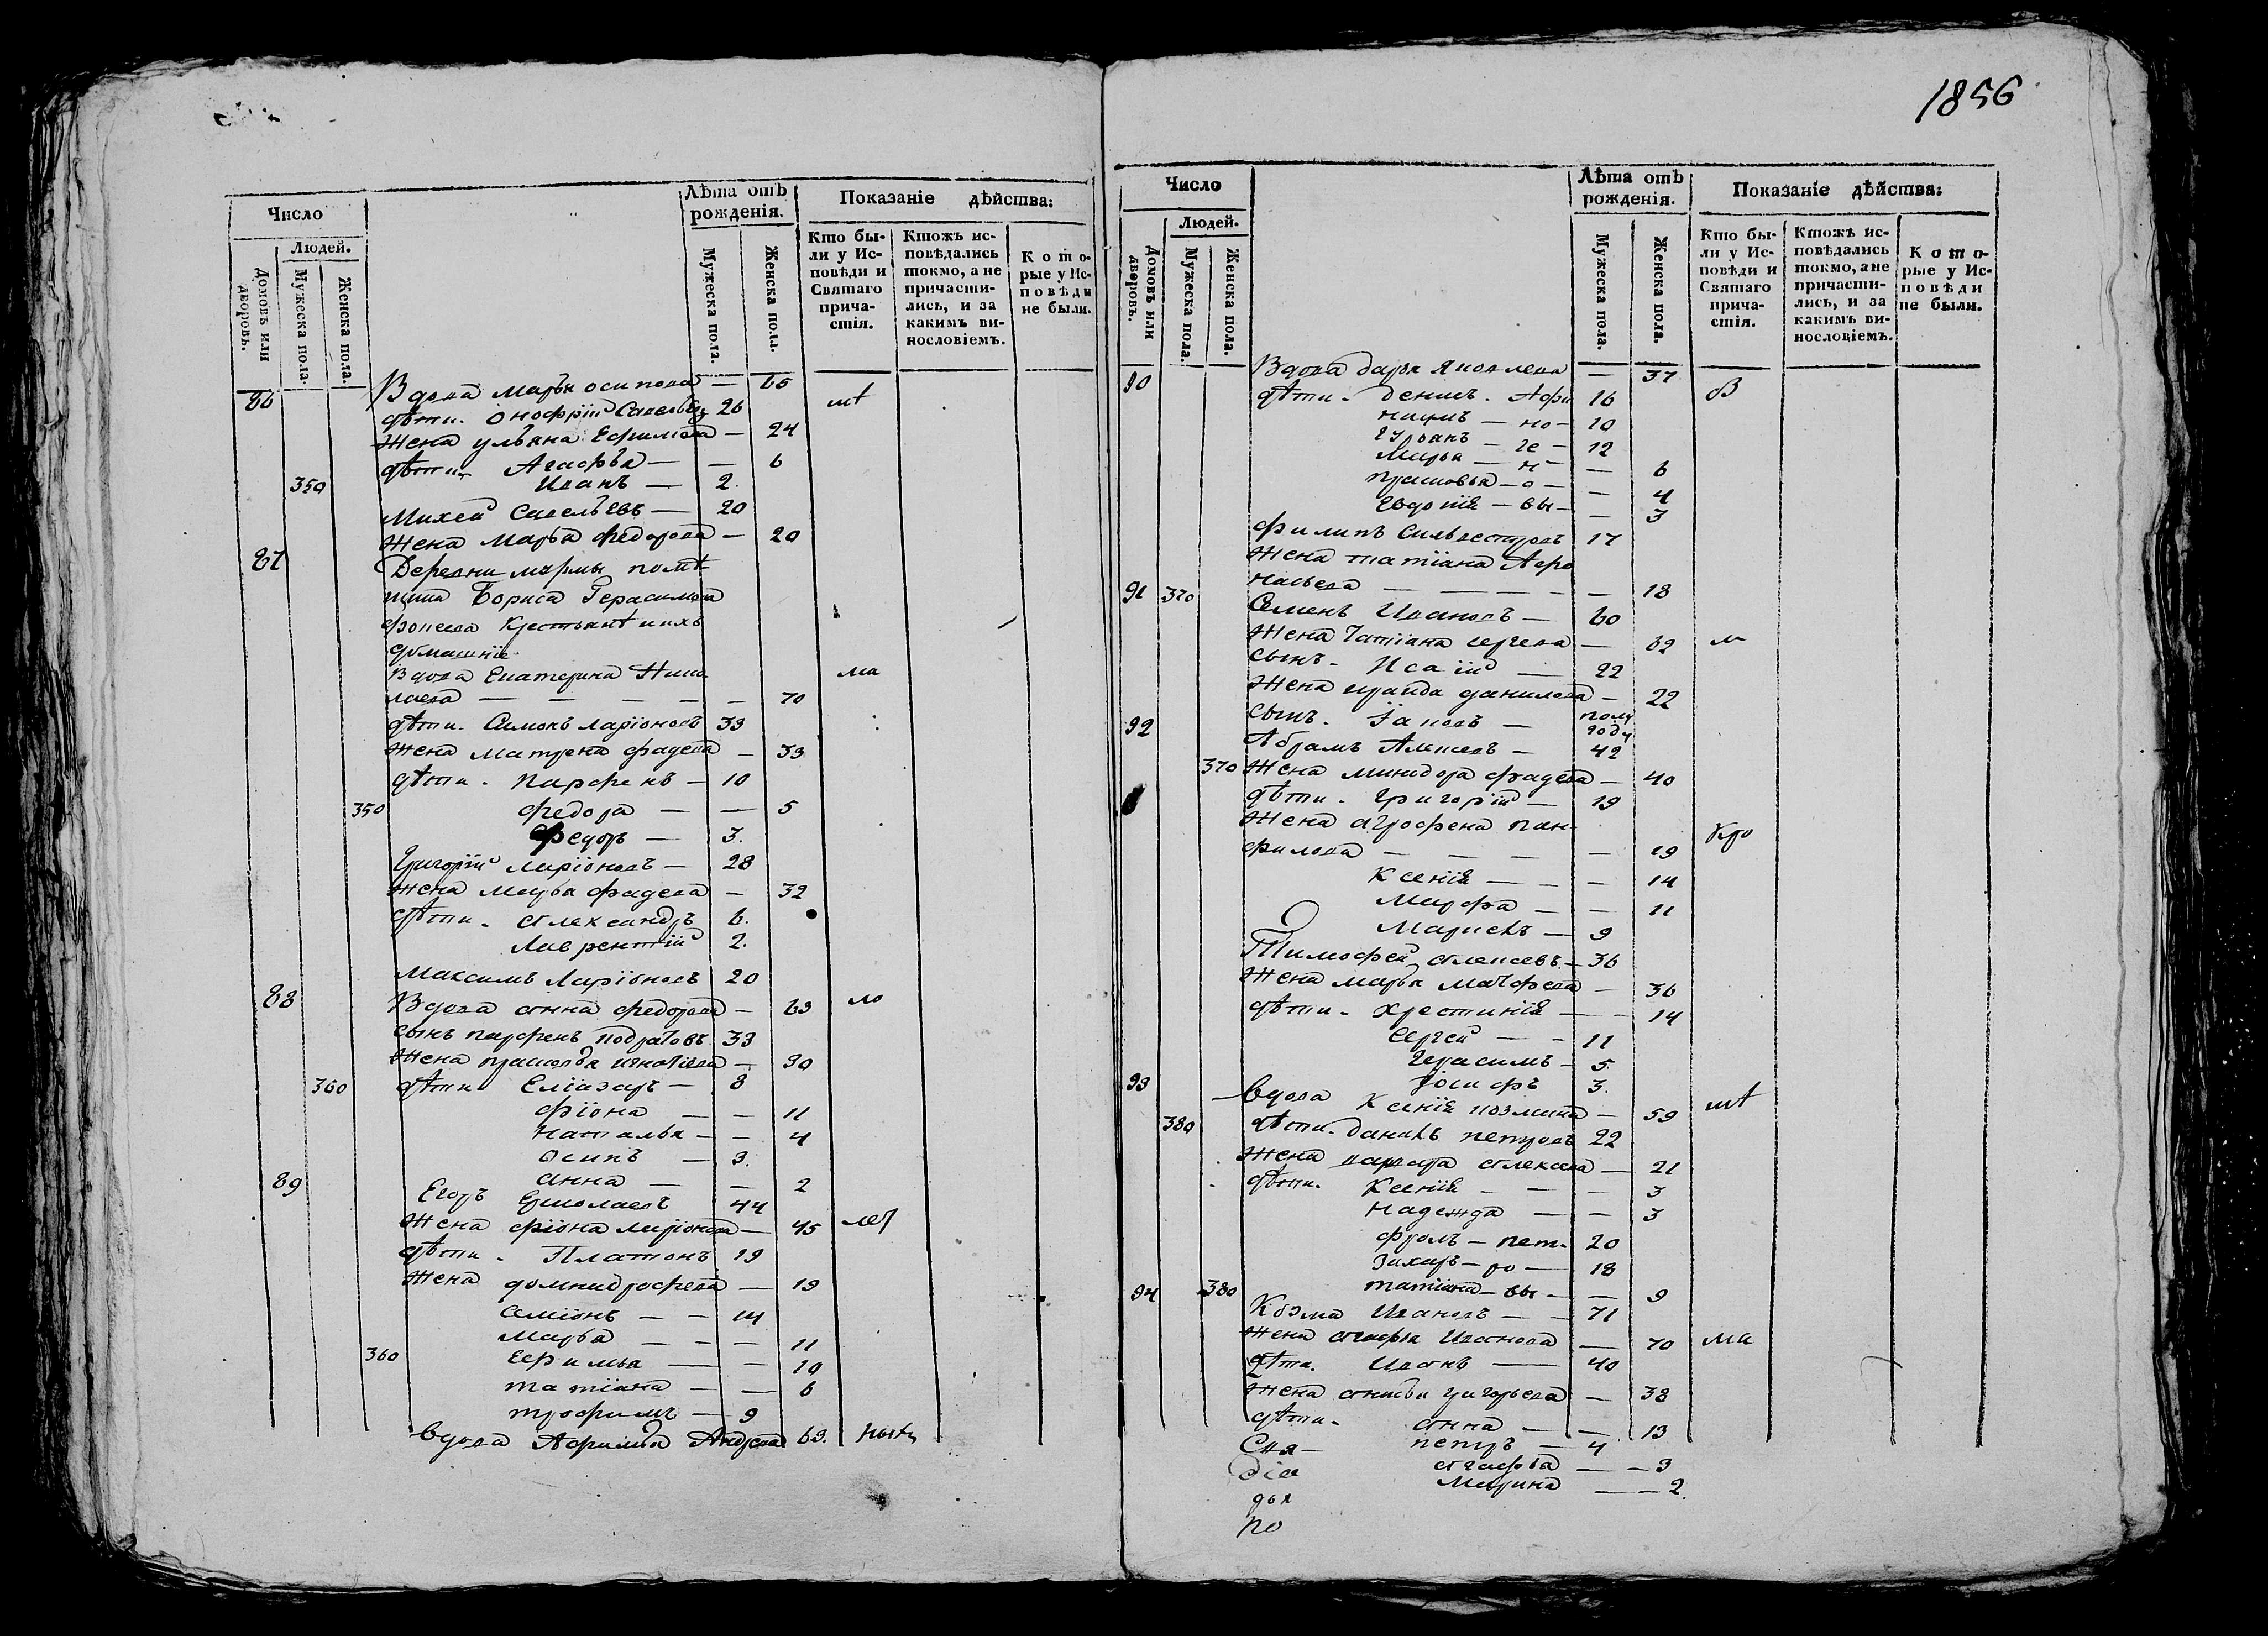 1856
Число
Людей.
Домовъ или дворовъ.
Мужеска пола.
Женска пола.
Лѣта отъ рожденія.
Мужеска пола.
Женска пола.
Показаніе дѣйства:
Кто бы-
ли у Ис-
повѣди и
Святаго
прича-
стія.
Ктожъ ис-
повѣдались
токмо, а не
причасти-
лись, и за
какимъ ви-
нословіемъ.
К о т о-
рые у Ис-
п о в ѣ д и
не были.
86 Вдова Марья осипова — 65
дѣти. Онофрій Савельевъ 26
Жена ульяна Ефимова — 24
дѣти. Агафья — — 6
350 Иванъ — 2.
Михей Савельевъ — 20
Жена Марья федорова — 20
87 Деревни
Бориса Герасимова
домашніе
Вдова Екатерина Нико
лаева — — — — — 70
дѣти. Симонъ ларіоновъ 33
Жена Матрена фадеева — 33
дѣти. Парфенъ — 10
350 федора — — 5
Федоръ — 3.
Григорій ларіоновъ — 28
жена Марья фадеева — 32
дѣти. александръ 6.
Лаврентій 2.
Максимъ Ларіоновъ 20
88 Вдова анна федорова — 63
сынъ парфенъ 33
Жена прасковья игнатьева — 30
360 дѣти Еліазаръ — 8
фіона — — 11
Наталья — — 4
Осипъ — 3.
анна — — 2
89 Егоръ Ермолаевъ 44
Жена фіона ларіонова — 45
дѣти. Платонъ 19
Жена — 19
Семіонъ — — 14
Марья — — — 11
360 Ефимья — — 10
татіана — — 6
трофимъ — 9
Вдова Афимья Андреева 63.
Число
Людей.
Домовъ или дворовъ.
Мужеска пола.
Женска пола.
Лѣта отъ рожденія.
Мужеска пола.
Женска пола.
Показаніе дѣйства:
Кто бы-
ли у Ис-
повѣди и
Святаго
прича-
стія.
Ктожъ ис-
повѣдались
токмо, а не
причасти-
лись, и за
какимъ ви-
нословіемъ.
К о т о-
рые у Ис-
п о в ѣ д и
не были.
90 Вдова дарья Яковлева — 37
дѣти. Денисъ. Афи 16
— но — 10
— ге — 12
Марья — н — — 6
прасковья — о — — 4
Евдокія — вы — — 3
филипъ Сильвестровъ 17
Жена татіана Афо
насьева — — — — — 18
91 370 Семенъ Ивановъ — 60
Жена Татіана сергеева — 62
сынъ. Исаій — 22
Жена ираида данилова — 22
сынъ. Іаковъ — полу году
92 Абрамъ Алексеевъ — 42
370 Жена минодора фадеева — 40
дѣти. григорій — 19
Жена агрофена пан-
филова — — — — 19
Ксенія — — — 14
Марфа — — 11
— 9
Тимофей алексеевъ — 36
Жена марья Матфеева — 36
дѣти. Хрестинія — — 14
Сергей — — 11
Герасимъ — 5.
Іосифъ 3.
93 Вдова Ксенія козмина — 59
380 дѣти. данилъ петровъ 22
Жена варвара алексеева — 21
дѣти. Ксенія — — — 3
Надежда — — 3
фролъ — пет. 20
Захаръ — ро — 18
380 татіана — вы — — 9
94 Козма Ивановъ — — 71
Жена агафья Иванова — 70
дѣти. Иванъ — 40
Жена григорьева — 38
дѣти. анна — — 13
петръ — 4
агафья — — 3
Марина — — 2.